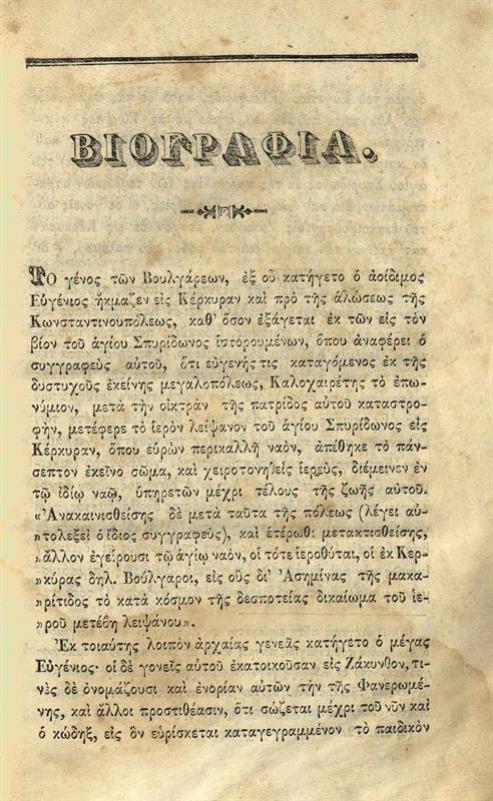 ΒΙΟΓΡΑΦΙΑ.
Τὸ γένος τῶν Βουλγάρεων, ἐξ οὗ κατήγετο ὁ ἀοίδιμος
Εὐγένιος ἤκμαζεν εἰς Κέρκυραν καὶ πρὸ τῆς ἁλώσεως τῆς
Κωνσταντινουπόλεως, καθ' ὅσον ἐξάγεται ἐκ τῶν εἰς τὸν
βίον τοῦ ἁγίου Σπυρίδωνος ἱστορουμένων, ὅπου ἀναφέρει ὁ
συγγραφεὺς αὐτοῦ, ὅτι εὐγενής τις καταγόμενος ἐκ τῆς
δυστυχοῦς ἐκείνης μεγαλοπόλεως, Καλοχαιρέτης τὸ ἐπω-
νύμιον, μετὰ τὴν οἰκτρὰν τῆς πατρίδος αὐτοῦ καταστρο-
φὴν, μετέφερε τὸ ἱερὸν λείψανον τοῦ ἁγίου Σπυρίδωνος εἰς
Κέρκυραν, ὅπου εὑρὼν περικαλλῆ ναὸν, ἀπέθηκε τὸ πάν-
σεπτον ἐκεῖνο σῶμα, καὶ χειροτονηθεὶς ἱερεὺς, διέμεινεν ἐν
τῷ ἰδίῳ ναῷ, ὑπηρετῶν μέχρι τέλους τῆς ζωῆς αὐτοῦ.
«Ἀνακαινισθείσης δὲ μετὰ ταῦτα τῆς πόλεως (λέγει αὐ-
»τολεξεὶ ὁ ἴδιος συγγραφεὺς), καὶ ἑτέρωθι μετακτισθείσης,
»ἄλλον ἐγείρουσι τῷ ἁγίῳ ναὸν, οἱ τότε ἱεροθύται, οἱ ἐκ Κερ-
»κύρας δηλ. Βούλγαροι, εἰς οὓς δι' Ἀσημίνας τῆς μακα-
»ρίτιδος τὸ κατὰ κόσμον τῆς δεσποτείας δικαίωμα τοῦ ἱε-
»ροῦ μετέβη λειψάνου».
Ἐκ τοιαύτης λοιπὸν ἀρχαίας γενεᾶς κατήγετο ὁ μέγας
Εὐγένιος· οἱ δὲ γονεῖς αὐτοῦ ἐκατοικοῦσαν εἰς Ζάκυνθον, τι-
νὲς δὲ ὀνομάζουσι καὶ ἐνορίαν αὐτῶν τὴν τῆς Φανερωμέ-
νης, καὶ ἄλλοι προστιθέασιν, ὅτι σώζεται μέχρι τοῦ νῦν καὶ
ὁ κώδηξ, εἰς ὃν εὑρίσκεται καταγεγραμμένον τὸ παιδικὸν